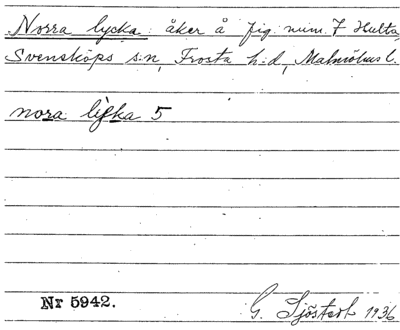 Norra lycka : åker å fig. num. 7 Hulta,
Svensköps s:n, Frosta h:d, Malmöhus l.
nora lyka 5
Nr 5942.
G. Sjöstedt 1936